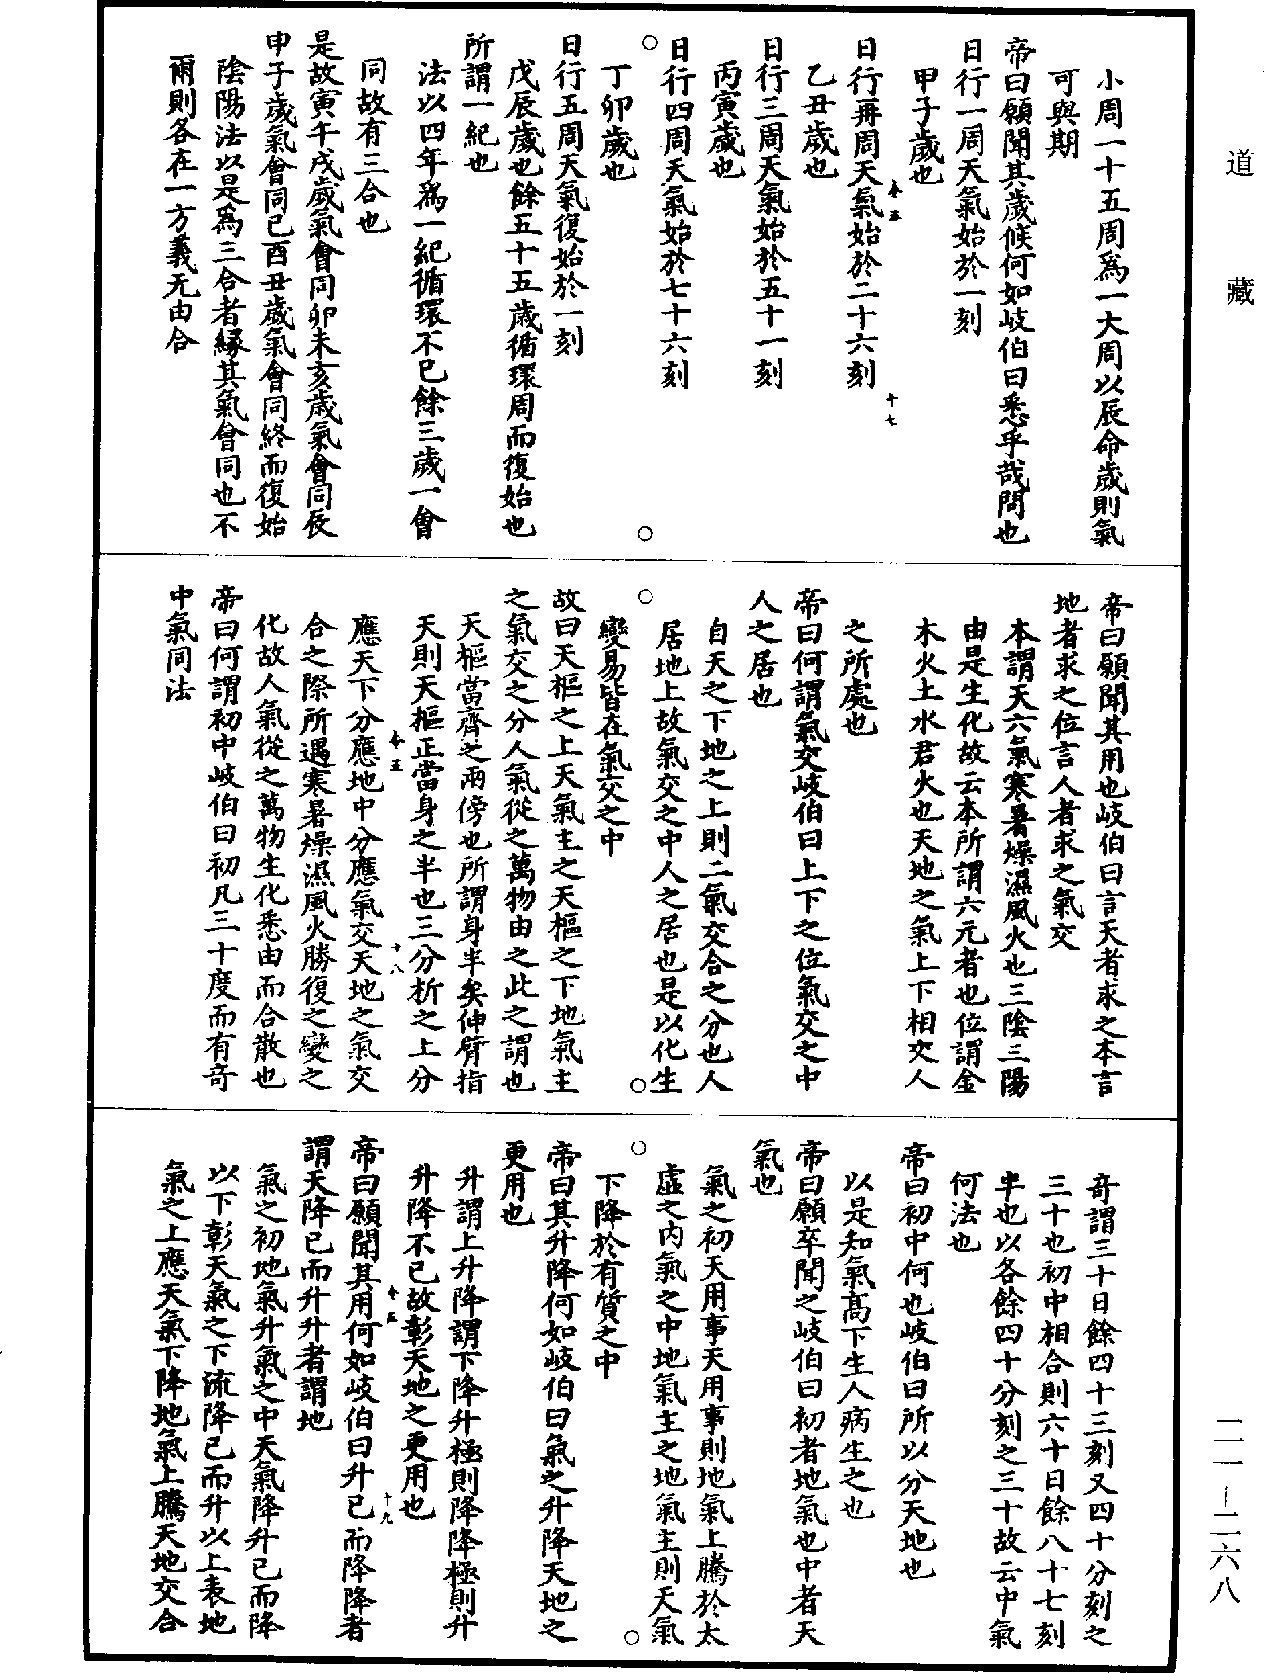 道藏
小周一十五周爲一大周以辰命歲則氣
可與期
帝曰願聞其歲候何如岐伯曰悉乎哉問也
日行一周天氣始於一刻
甲子歲也
卷五
十七
日行再周天氣始於二十六刻
乙丑歲也
日行三周天氣始於五十一刻
丙寅歲也
日行四周天氣始於七十六刻
丁卯歲也
日行五周天氣復始於一刻
戊辰歲也餘五十五歲循環周而復始也
所謂一紀也
法以四年爲一紀循環不已餘三歲一會
同故有三合也
是故寅午戌歲氣會同卯未亥歲氣會同辰
申子歲氣會同巳酉丑歲氣會同終而復始
陰陽法以是爲三合者緣其氣會同也不
爾則各在一方義无由合
帝曰願聞其用也岐伯曰言天者求之本言
地者求之位言人者求之氣交
本謂天六氣寒暑燥濕風火也三陰三陽
由是生化故云本所謂六元者也位謂金
木火土水君火也天地之氣上下相交人
之所處也
帝曰何謂氣交岐伯曰上下之位氣交之中
人之居也
自天之下地之上則二氣交合之分也人
居地上故氣交之中人之居也是以化生
變易皆在氣交之中
故曰天樞之上天氣主之天樞之下地氣主
之氣交之分人氣從之萬物由之此之謂也
天樞當齊之兩傍也所謂身半矣伸臂指
天則天樞正當身之半也三分折之上分
卷五
十八
應天下分應地中分應氣交天地之氣交
合之際所遇寒暑燥濕風火勝復之變之
化故人氣從之萬物生化悉由而合散也
帝曰何謂初中岐伯曰初凡三十度而有奇
中氣同法
奇謂三十日餘四十三刻又四十分刻之
三十也初中相合則六十日餘八十七刻
半也以各餘四十分刻之三十故云中氣
何法也
帝曰初中何也岐伯曰所以分天地也
以是知氣高下生人病生之也
帝曰願卒聞之岐伯曰初者地氣也中者天
氣也
氣之初天用事天用事則地氣上騰於太
虛之内氣之中地氣主之地氣主則天氣
下降於有質之中
帝曰其升降何如岐伯曰氣之升降天地之
更用也
升謂上升降謂下降升極則降降極則升
升降不已故彰天地之更用也
卷五
十九
帝曰願聞其用何如岐伯曰升已而降降者
謂天降已而升升者謂地
氣之初地氣升氣之中天氣降升已而降
以下彰天氣之下流降已而升以上表地
氣之上應天氣下降地氣上騰天地交合
二一—二六八